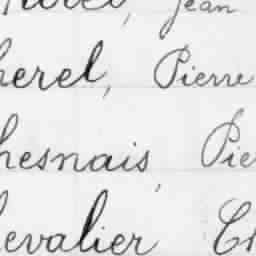 Jean
herel, Pierre
hesnais, Pie
hevalier Ch